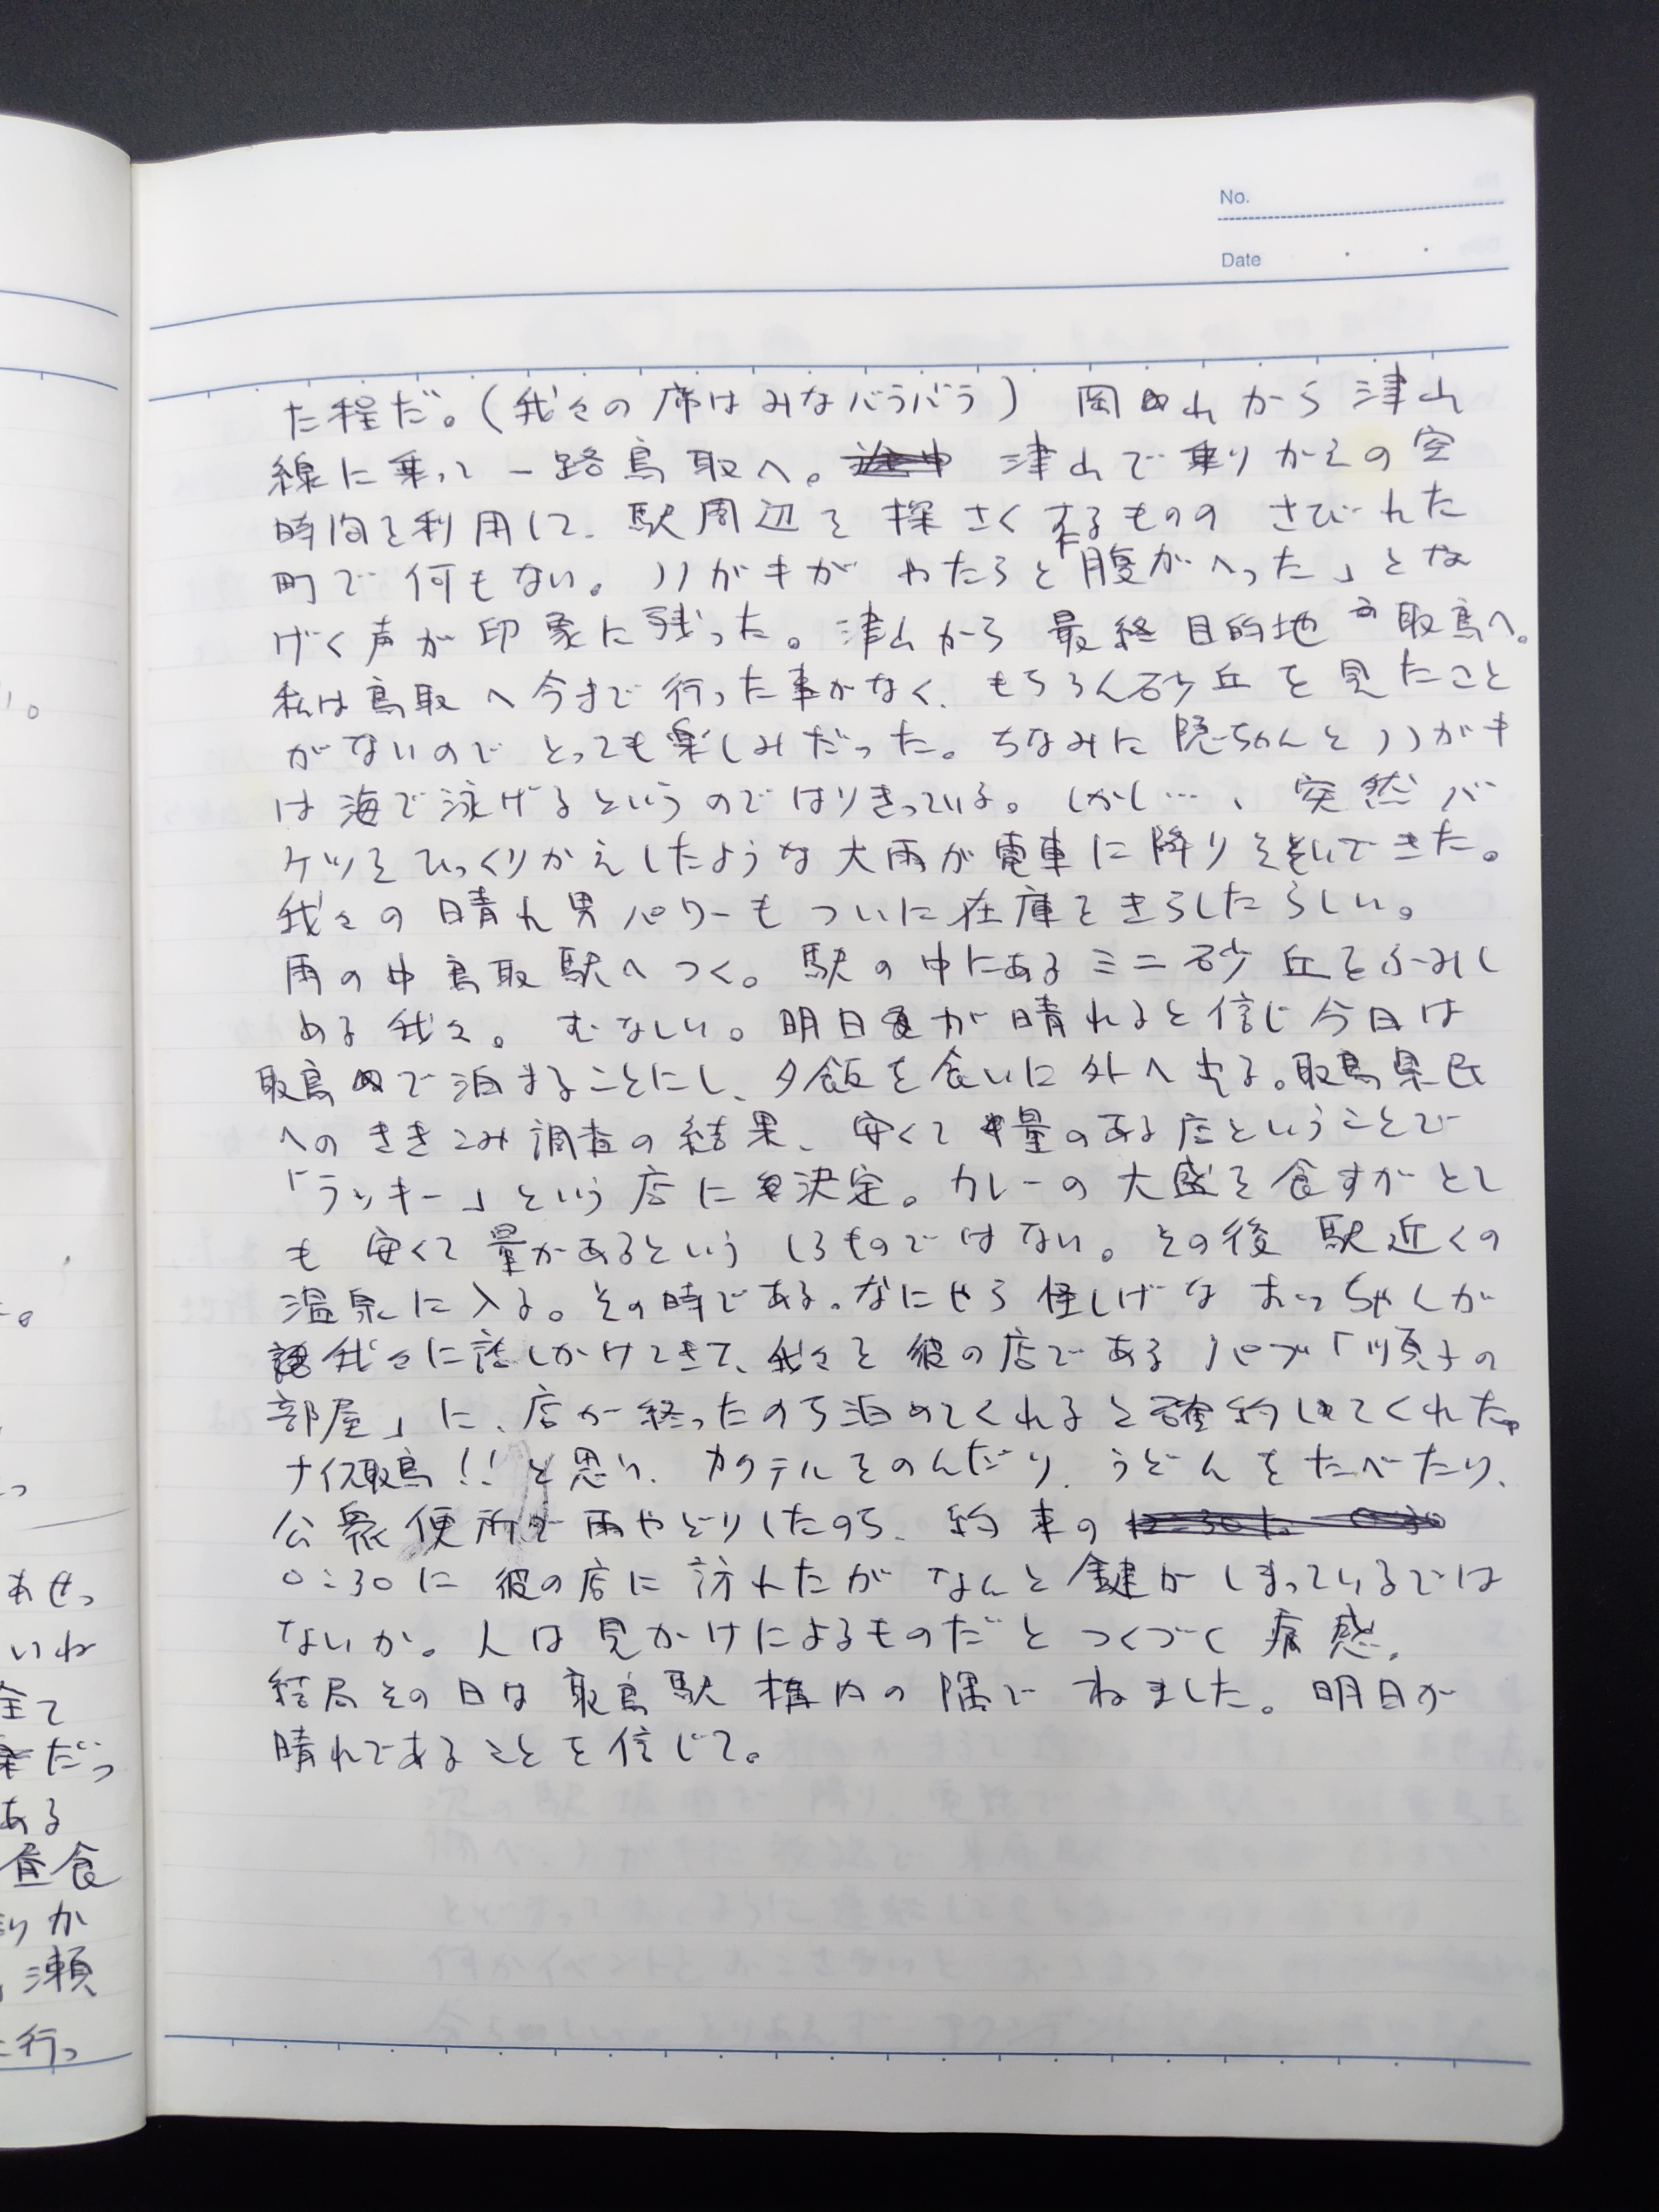 No.
Date
た程だ。(我々の席はみなバラバラ) 岡山から津山
線に乗って一路鳥取へ。津山で乗りかえの空
時間を利用して、駅周辺を探さくするものの さびれた
町で何もない。ハガキがやたらと「腹がへった」とな
げく声が印象に残った。津山から最終目的地の取鳥へ。
私は鳥取へ今まで行った事がなく、もちろん砂丘を見たこと
がないのでとっても楽しみだった。ちなみに隠ちゃんとハガキ
は海で泳げるというのではりきっている。しかし…、突然バ
ケツをひっくりかえしたような大雨が電車に降りそそいできた。
我々の晴れ男パワーもついに在庫をきらしたらしい。
雨の中鳥取駅へつく。駅の中にあるミニ砂丘をふみし
める我々。むなしい。明日が晴れると信じ今日は
取鳥で泊まることにし、夕飯を食いに外へ出る。取鳥県民
へのききこみ調査の結果、安くて量のある店ということで
「ラッキー」という店に決定。カレーの大盛を食すがとて
も安くて量があるというしろものではない。その後駅近くの
温泉に入る。その時である。なにやら怪しげなおっちゃんが
我々に話しかけてきて、我々を彼の店であるパブ「順子の
部屋」に、店が終ったのち泊めてくれると確約してくれた。
ナイス取鳥!!と思い、カクテルをのんだり、うどんをたべたり、
公衆便所で雨やどりしたのち、約束の
0:30に彼の店に訪れたがなんと鍵がしまっているでは
ないか。人は見かけによるものだとつくづく痛感。
結局その日は取鳥駅構内の隅でねました。明日が
晴れであることを信じて。
あせっ
いね
全て
だっ
ある
昼食
りか
瀬
行っ